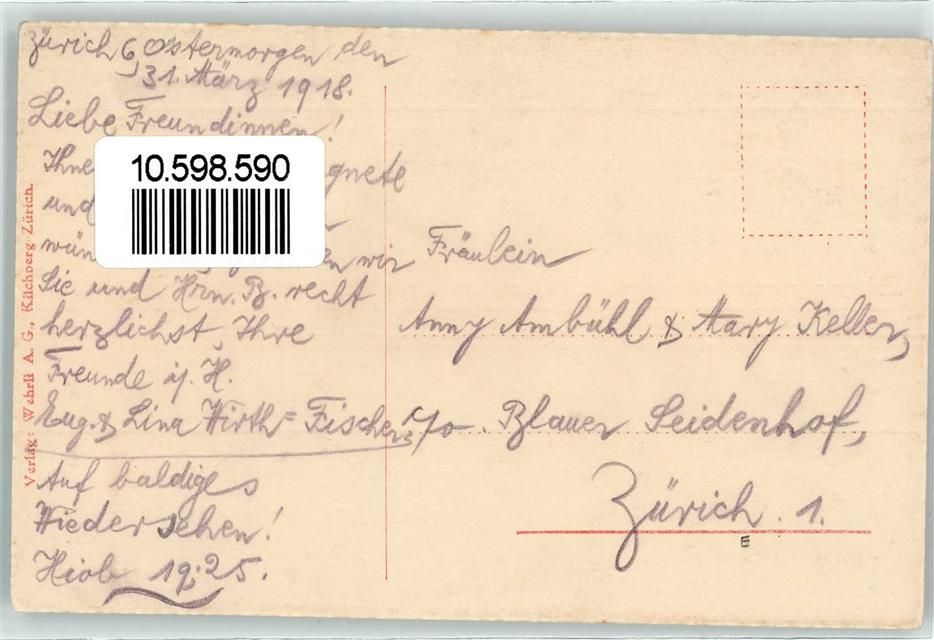 Zürich 6, Ostermorgen den
31. März 1918.
Liebe Freundinnen!
Ihne gnete
und
wün en wir
Sie und Hrn. B. recht
herzlichst, Ihre
Freunde i. H.
Eug. & Lina Wirth-Fischer,
Auf baldiges
Wiedersehen!
Hiob 19:25.
10.598.590
Verlag: Wehrli A. G., Kilchberg-Zürich.
Fräulein
Anny Ambühl & Mary Keller,
c/o. Blauer Seidenhof,
Zürich. 1.
E